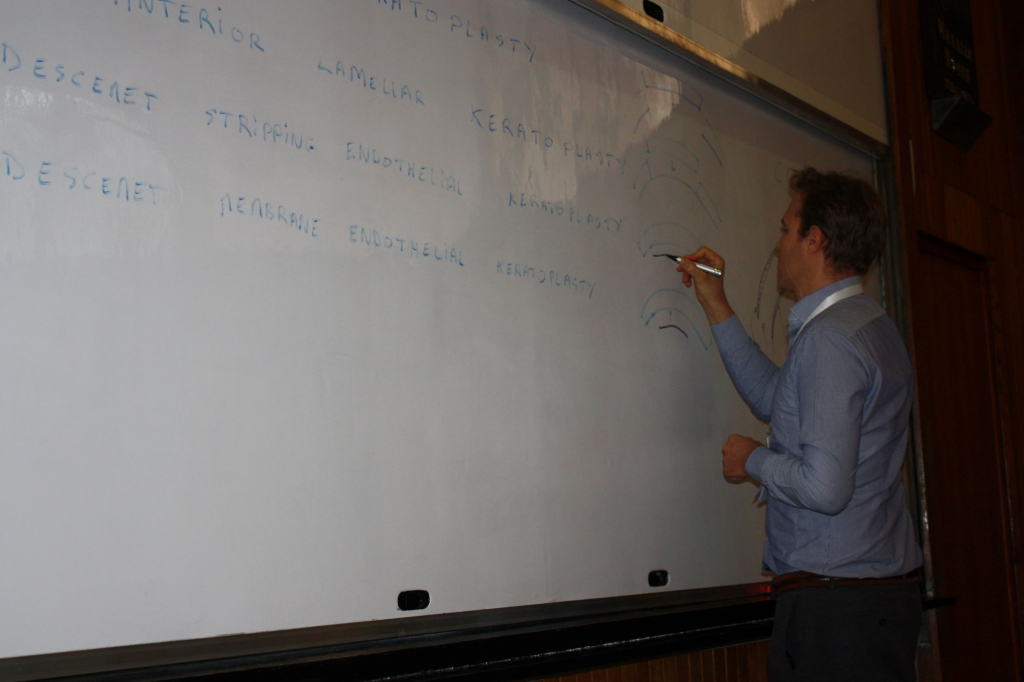 KERATOPLASTY
ANTERIOR LAMELLAR KERATOPLASTY
DESCEMET STRIPPING ENDOTHELIAL KERATOPLASTY
DESCEMET MEMBRANE ENDOTHELIAL KERATOPLASTY